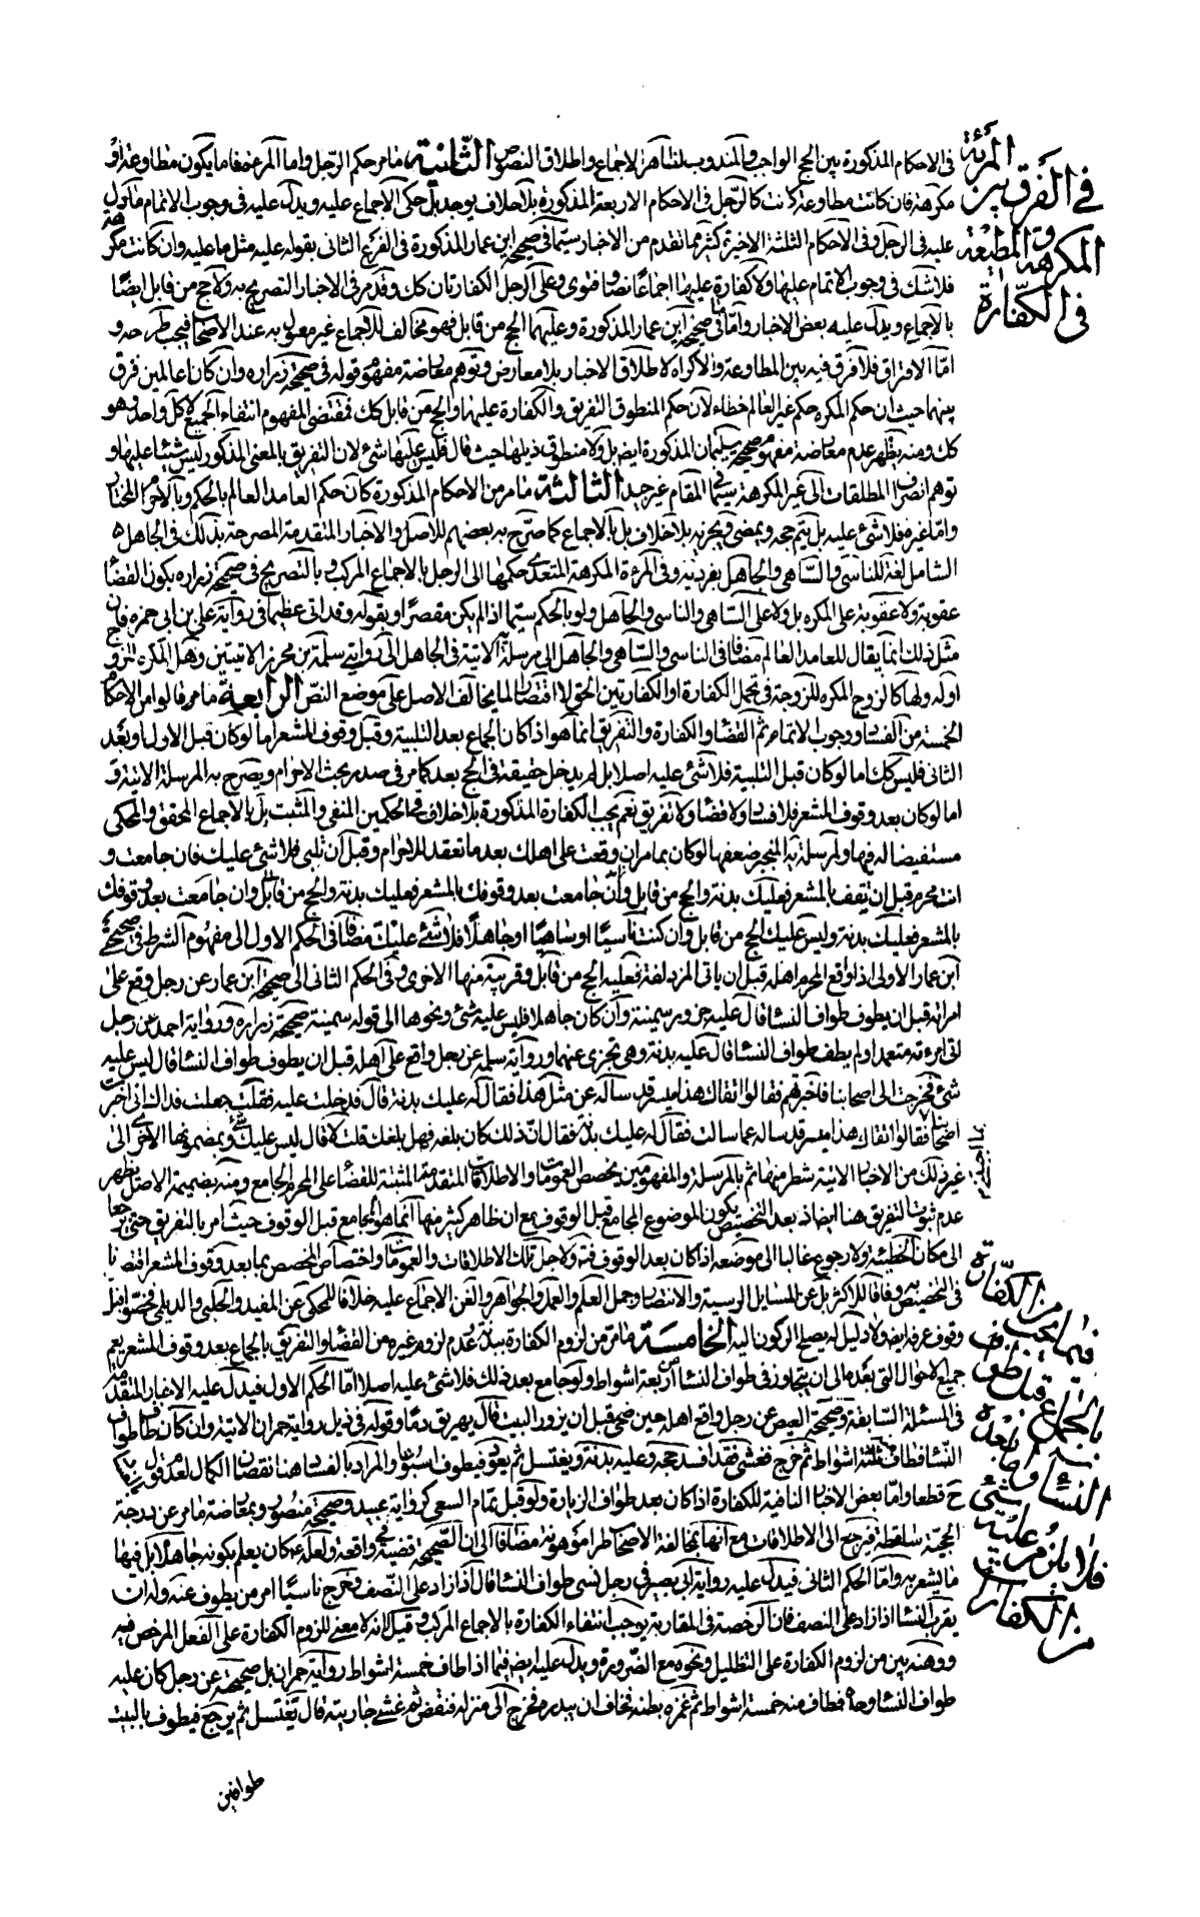 في الفرق بين المرئة
المكرهة والمطيعة
في الكفارة
في الاحكام المذكورة بين الحج الواجب والمندوب لظاهر الاجماع واطلاق النصوص الثانية ما مر حكم الرجل واما المرءة فاما يكون مطاوعة او
مكرهة فان كانت مطاوعة كانت كالرجل في الاحكام الاربعة المذكورة بلا خلاف يوجد بل حكى الاجماع عليه ويدل عليه في وجوب الاتمام ما دل
عليه في الرجل وفي الاحكام الثلثة الاخيرة كثير مما تقدم من الاخبار سيما في صحيحة ابن عمار المذكورة في الفرع الثاني بقوله عليه مثل ما عليه وان كانت مكرهة
فلا شك في وجوب الاتمام عليها ولا كفارة عليها اجماعا نصا وفتوى وعلى الرجل الكفارتان كك وقد مر في الاخبار التصريح به ولا حج من قابل ايضا
بالاجماع ويدل عليه بعض الاخبار واما في صحيحة ابن عمار المذكورة وعليهما الحج من قابل فهو مخالف للاجماع غير معمول به عند الاصحاب فيجب طرحه و
اما الافتراق فلا فرق فيه بين المطاوعة والاكراه لاطلاق الاخبار بلا معارض وتوهم معارضة مفهوم قوله في صحيحة زرارة وان كان عالمين فرق
بينهما حيث ان حكم المكره حكم غير العالم خطاء لان حكم المنطوق التفريق والكفارة عليهما والحج من قابل كك فمقتضى المفهوم انتفاء الجميع لا كل واحد وهو
كك ومنه يظهر عدم معارضة مفهوم صحيحة سليمان المذكورة ايضا بل ولا منطوق ذيلها حيث قال فليس عليها شئ لان التفريق بالمعنى المذكور ليس شيئا عليها و
توهم انصراف المطلقات الى غير المكرهة سيما في المقام غير جيد الثالثة ما مر من الاحكام المذكورة كان حكم العامد العالم بالحكم وبالاحرام المختار
واما غيره فلا شئ عليه بل يتم حجه ويمضي ويجزيه بلا خلاف بل بالاجماع كما صرح به بعضهم للاصل والاخبار المتقدمة المصرحة بذلك في الجاهل
الشامل لغة للناسي والساهي والجاهل بفرديه وفي المرءة المكرهة المتعدي حكمها الى الرجل بالاجماع المركب وبالتصريح في صحيحة زرارة بكون القضاء
عقوبة ولا عقوبة على المكره بل ولا على الساهي والناسي والجاهل ولو بالحكم سيما اذا لم يكن مقصرا وبقوله وقد اتى عظيما في رواية علي بن ابي حمزة فان
مثل ذلك انما يقال للعامد العالم مضافا في الناسي والساهي والجاهل الى مرسلة الاتية في الجاهل الى رواية سلمة بن محرز الاتيتين وهل المكره للزوج
او له ولها كالزوج المكره للزوجة في تحمل الكفارة او الكفارتين الحق لا اقتصارا لما يخالف الاصل على موضع النص الرابعة ما مر قالوا من الاحكام
الخمسة من الفساد ووجوب الاتمام ثم القضاء والكفارة والتفريق انما هو اذا كان الجماع بعد التلبية وقبل وقوف المشعر اما لو كان قبل الاول او بعد
الثاني فليس كك اما لو كان قبل التلبية فلا شئ عليه اصلا بل لم يدخل حقيقة في الحج بعد كما مر في صدر بحث الاحرام ويصرح به المرسلة الاتية و
اما لو كان بعد وقوف المشعر فلا فساد ولا قضاء ولا تفريق نعم يجب الكفارة المذكورة بلا خلاف في الحكمين المنفي والمثبت بل بالاجماع المحقق والمحكي
مستفيضا له فيها ولمرسلة يه المنجبر ضعفها لو كان بما مر ان وقعت على اهلك بعد ما تعقد للاحرام وقبل ان تلبي فلا شئ عليك فان جامعت و
انت محرم قبل ان تقف بالمشعر فعليك بدنة والحج من قابل وان جامعت بعد وقوفك
بالمشعر فعليك بدنة وليس عليك الحج من قابل وان كنت ناسيا او ساهيا او جاهلا فلا شئ عليك مضافا في الحكم الاول الى مفهوم الشرط في صحيحتي
ابن عمار الاولى اذا واقع المحرم اهله قبل ان ياتي المزدلفة فعليه الحج من قابل وقريبة منها الاخرى وفي الحكم الثاني الى صحيحة ابن عمار عن رجل وقع على
امراته قبل ان يطوف طواف النساء قال عليه جزور سمينة وان كان جاهلا فليس عليه شئ ونحوها الى قوله سمينة صحيحة زرارة ورواية احمد عن رجل
اتى امرءته متعمدا ولم يطف طواف النساء قال عليه بدنة وهي تجزي عنهما ورواية سلمة عن رجل واقع على اهله قبل ان يطوف طواف النساء قال ليس عليه
شئ فخرجت الى اصحابنا فاخبرتهم فقالوا اتقاك هذا ميسر قد سأله عن مثل هذا فقال له عليك بدنة قال فدخلت عليه فقلت جعلت فداك اني اخبرت
اصحابنا فقالوا اتقاك هذا ميسر قد ساله عما سالت فقال له عليك بدنة فقال ان ذلك كان بلغه فهل بلغك قلت لا قال ليس عليك شئ وبمضمونها الاخرى الى
غير ذلك من الاخبار الاتية شطر منها ثم بالمرسلة والمفهومين يخصص العمومات والاطلاقات المتقدمة المثبتة للقضاء على المحرم المجامع ومنه بضميمة الاصل يظهر
عدم ثبوت التفريق هنا ايضا اذ بعد التخصيص يكون الموضوع المجامع قبل الوقوف مع ان ظاهر كثير منها انما هو المجامع قبل الوقوف حيث امر بالتفريق حتى يرجعا
الى مكان الخطيئة ولا رجوع غالبا الى موضعه اذا كان بعد الوقوف فتم ولاجل تلك الاطلاقات والعمومات واختصاص المخصص بما بعد وقوف المشعر اقتصرنا
في التخصيص به وفاقا للاكثر بل عن المسايل الرسية والانتصار وجمل العلم والعمل والجواهر والغنية الاجماع عليه خلافا للمحكي عن المفيد والحلبي والديلمي فخصوا قبل
وقوف عرفة ايضا ولا دليل له يصلح الركون اليه الخامسة ما مر من لزوم الكفارة ببدنة وعدم لزوم غيره من القضاء والتفريق بالجماع بعد وقوف المشعر يعم
جميع الاحوال التي بعده الى ان يتجاوز في طواف النساء اربعة اشواط ولو جامع بعد ذلك فلا شئ عليه اصلا اما الحكم الاول فيدل عليه الاخبار المتقدمة
في المسئلة السابقة وصحيحة العيص عن رجل واقع اهله حين ضحى قبل ان يزور البيت قال يهريق دما وقوله في ذيل رواية حمران الاتية وان كان طاف طواف
النساء فطاف منه ثلثة اشواط ثم خرج فغشي فقد افسد حجه وعليه بدنة ويغتسل ثم يعود فيطوف اسبوعا والمراد بالفساد هنا نقصان الكمال لعدم
ح قطعا واما بعض الاخبار النافية للكفارة اذا كان بعد طواف الزيارة ولو قبل تمام السعي كرواية عبيد وصحيحة منصور وبمعارضة ما مر عن درجة
الحجية ساقطة فيرجع الى الاطلاقات مع انها بمخالفة الاصحاب طرا موهونة مضافا الى ان الصحيحة قضية في واقعة ولعله ع كان يعلم بكونه جاهلا بل فيها
ما يشعر به واما الحكم الثاني فيدل عليه رواية ابي بصير في رجل نسى طواف النساء قال اذا زاد على النصف وخرج ناسيا امر من يطوف عنه وله ان
يقرب النساء اذا زاد على النصف فان الرخصة في المقاربة يوجب انتفاء الكفارة بالاجماع المركب وقيل لانه لا معنى للزوم الكفارة على الفعل المرخص فيه
ووهنه بين من لزوم الكفارة على التظليل ونحوه مع الضرورة ويدل عليه ايضا فيما اذا طاف خمسة اشواط رواية حمران بل صحيحته عن رجل كان عليه
طواف النساء وحده فطاف منه خمسة اشواط ثم غمزه بطنه فخاف ان يبدره فخرج الى منزله فنقض ثم غشي جاريته قال يغتسل ثم يرجع فيطوف بالبيت
فيما يجب من الكفارة
بالجماع قبل طواف
النساء وما بعده
فلا يلزم عليه شئ
من الكفارات
طوافين